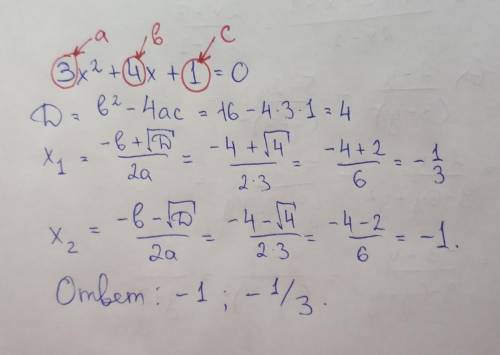 a в c
3x² + 4x + 1 = 0
D = в² - 4ac = 16 - 4·3·1 = 4
x₁ = (-в + √D)/2a = (-4 + √4)/2·3 = (-4+2)/6 = -1/3
x₂ = (-в - √D)/2a = (-4 - √4)/2·3 = (-4-2)/6 = -1.
Ответ: -1 ; -1/3.